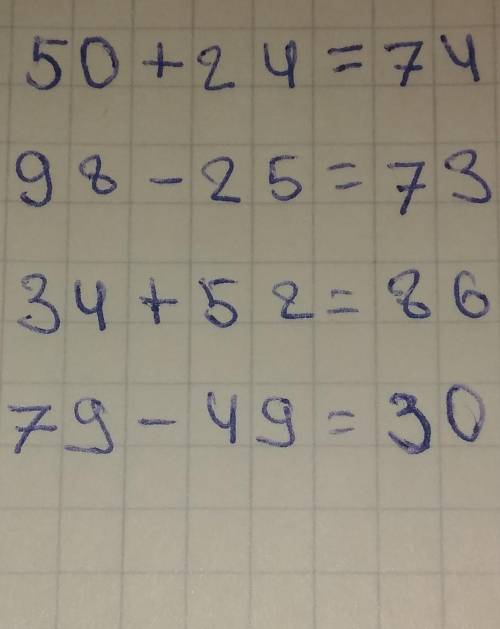 50 + 24 = 74
98 - 25 = 73
34 + 52 = 86
79 - 49 = 30